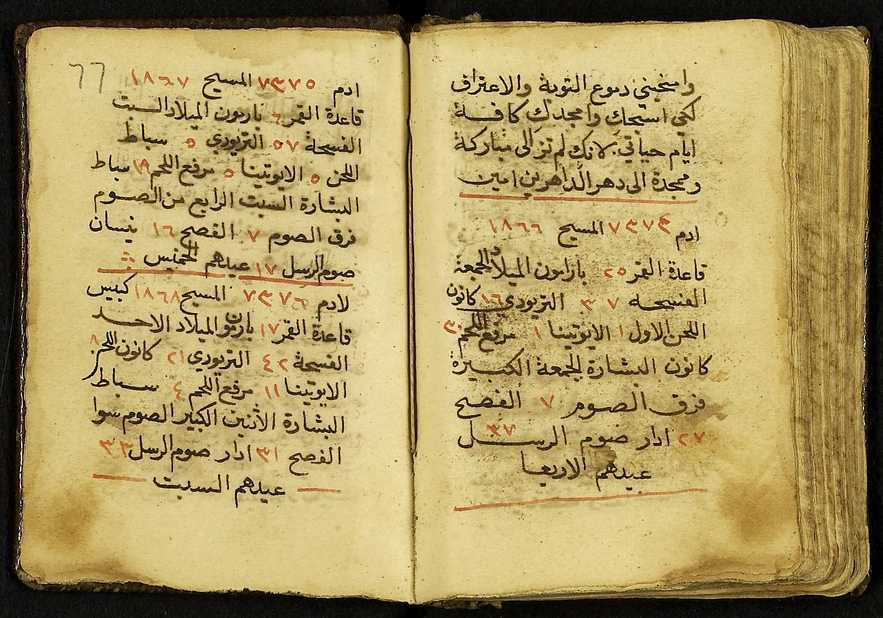 وامنحيني دموع التوبة والاعتراف
لكي اسبحك وامجدك كافة
ايام حياتي لانك لم تزالي مباركة
وممجدة الى دهر الداهرين امين
ادم ٧٣٧٤ المسيح ١٨٦٦
قاعدة القمر ٢٥ بارامون الميلاد الجمعة
الفسحه ٣٧ التريودي ١٦ كانون
اللحن الاول ١ الايوتينا ١ مرفع اللحم ٣٠
كانون البشارة الجمعة الكبيرة
فرق الصوم ٧ الفصح
٢٧ ادار صوم الرسل ٣٧
عيدهم الاربعا
66
ادم ٧٣٧٥ المسيح ١٨٦٧
قاعدة القمر ٦ بارمون الميلاد السبت
الفسحة ٥٧ التريودي ٥ سباط
اللحن ٥ الايوتينا ٥ مرفع اللحم ١٩ سباط
البشارة السبت الرابع من الصوم
فرق الصوم ٧ الفصح ١٦ نيسان
صوم الرسل ١٧ عيدهم الخميس
لادم ٧٣٧٦ المسيح ١٨٦٨ كبيس
قاعدة القمر ١٧ بارمون الميلاد الاحد
الفسحة ٤٢ التريودي ٢١ كانون اللحن ٨
الايوتينا ١١ مرفع اللحم ٤ سباط
البشارة الاثنين الكبير الصوم سوا
الفصح ٣١ ادار صوم الرسل ٣٣
عيدهم السبت